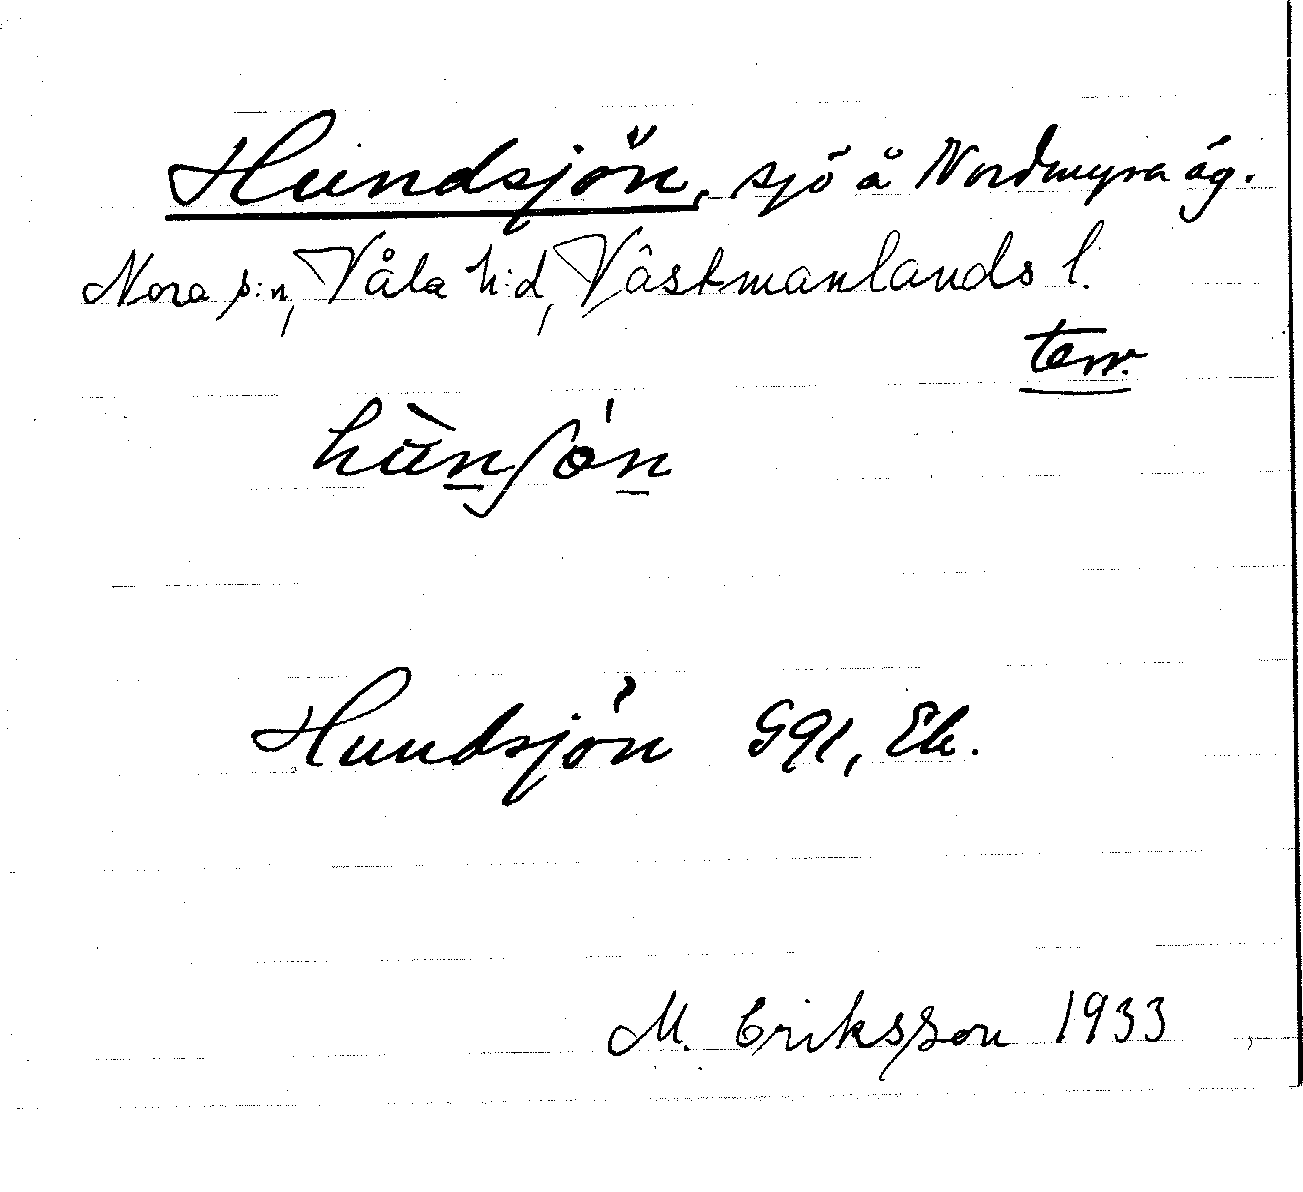 Hundsjön, sjö å Nordmyra äg.
Nora s:n, Våla h:d, Västmanlands l.
terr.
Hundsjön GGl, Ek.
M. Eriksson 1933